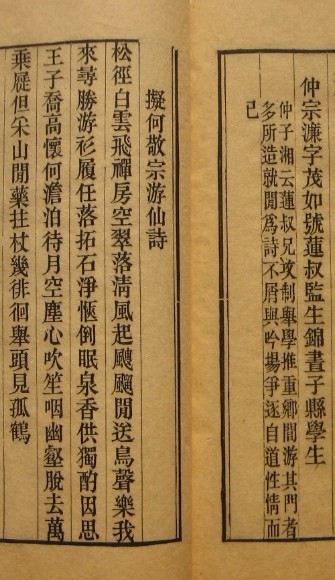 仲宗濂字茂如號蓮叔監生錦晝子縣學生
仲子湘云蓮叔兄攻制舉學推重鄉閭游其門者
多所造就閒爲詩不屑與吟場爭逐自道性情而
已
擬何敬宗游仙詩
松徑白雲飛禪房空翠落清風起飃颸閒送鳥聲樂我
來尋勝游衫履任落拓石淨愜倒眠泉香供獨酌因思
王子喬高懷何澹泊待月空塵心吹笙咽幽壑脫去萬
乘屣但釆山閒藥拄杖幾徘徊舉頭見孤鶴